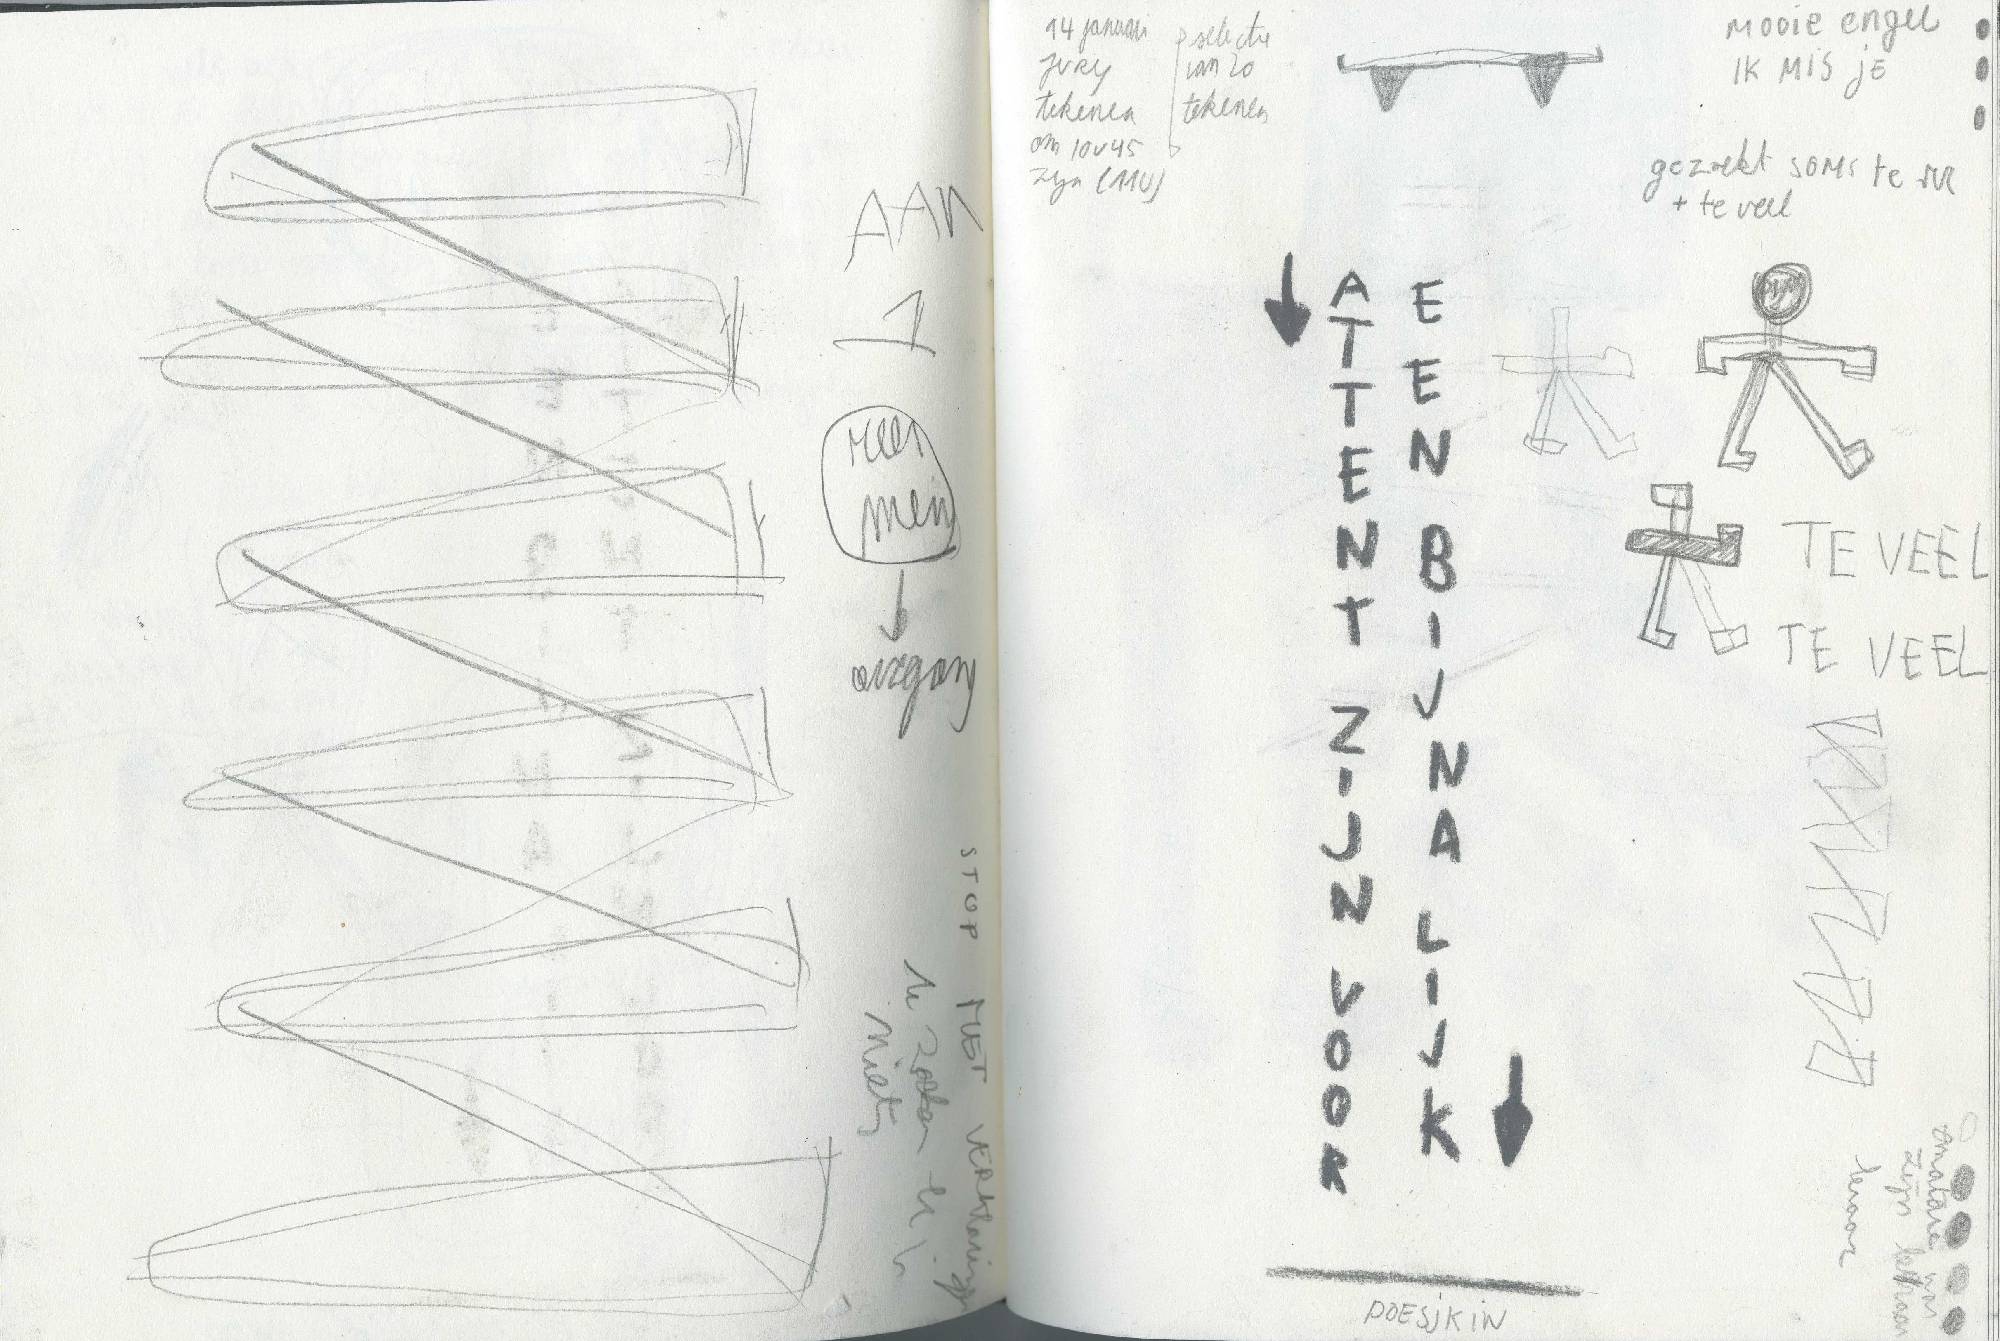 AAN
1
meer
men
overgang
STOP MET VERKLARINGEN
te zoeken
niet
14 januari
JURY
tekenen
om 10u45
zijn (MU)
selectie
van 20
tekenen
MOOIE engel
IK MIS JE
gezoekt soms te
+ te veel
ATTENT ZIJN VOOR
EEN BIJNA LIJK
TE VEEL
TE VEEL
zijn
POESJKIN